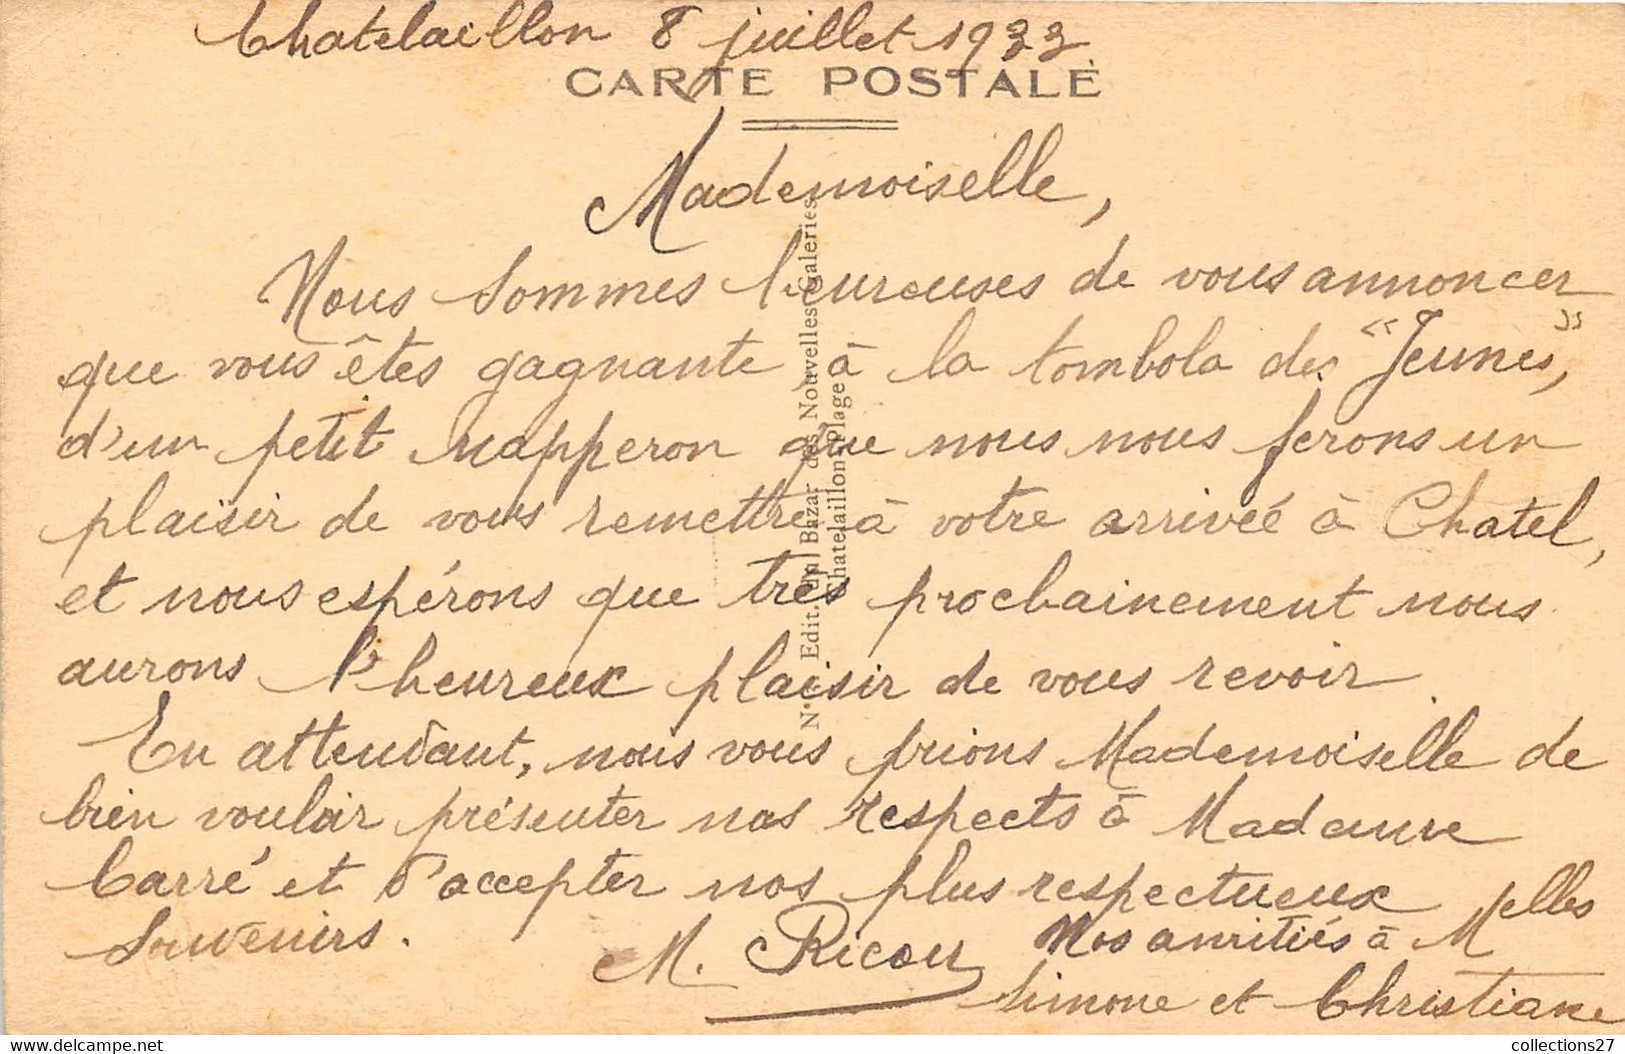 Chatelaillon 8 juillet 1933
CARTE POSTALE
Mademoiselle,
Nous sommes heureuses de vous annoncer
que vous êtes gagnante, à la tombola des "Jeunes",
d'un petit napperon que nous nous ferons un
plaisir de vous remettre à votre arrivée à Chatel,
et nous espérons que très prochainement nous
aurons l'heureux plaisir de vous revoir.
En attendant, nous vous prions Mademoiselle de
bien vouloir présenter nos respects à Madame
Carré et d'accepter nos plus respectueux
souvenirs.
M. Ricou
Nos amitiés à Melles
Simone et Christiane
Edit. du Bazar des Nouvelles Galeries
Chatelaillon-plage
collections27